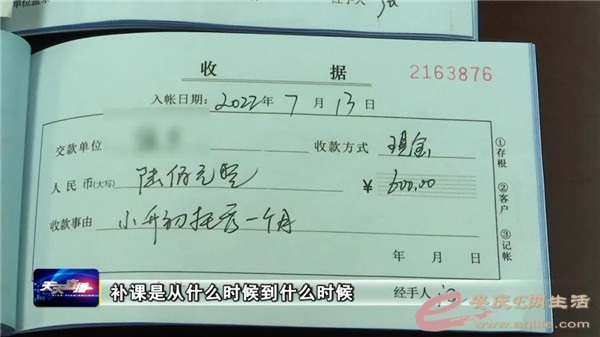 单位盖章
经手人
收 据
2163876
入帐日期: 2022年 7月 13日
交款单位 收款方式 现金
人民币(大写) 陆佰元整 ¥ 600.00
收款事由 小升初托管一个月
年 月 日
经手人
①存根 ②客户 ③记帐
天天直播
补课是从什么时候到什么时候
安庆E网生活
www.aqlife.com